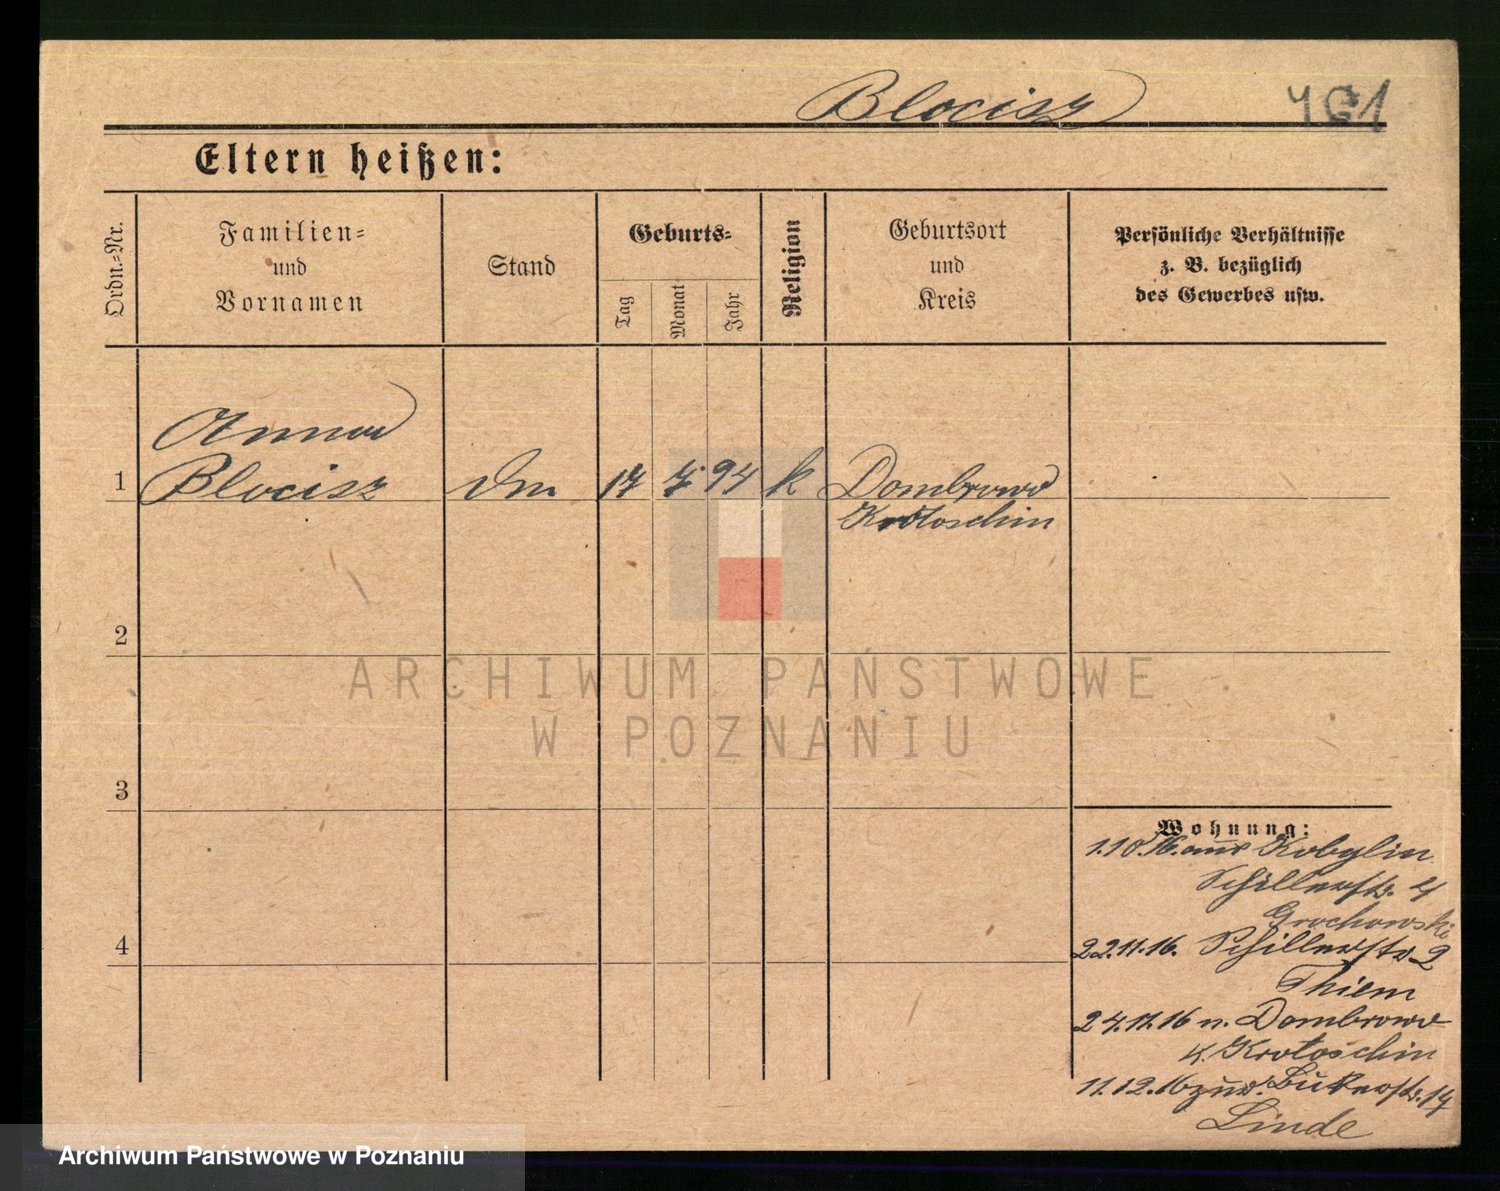 Blocisz
Eltern heißen:
Ordn.-Nr.
Familien-
und
Vornamen
Stand
Geburts-
Tag
Monat
Jahr
Religion
Geburtsort
und
Kreis
Persönliche Verhältnisse
z. B. bezüglich
des Gewerbes usw.
Anna
1 Blocisz 17 7. 94 k Dombrowo
Krotoschin
2
3
4
ARCHIWUM PAŃSTWOWE
W POZNANIU
Wohnung:
1.10.16. aus Kobylin
Schillerstr. 4
Grochowski
22.11.16. Schillerstr 2
Thiem
24.11.16 n. Dombrowo
K. Krotoschin
11.12.16 zur. Bukerstr. 14
Linde
Archiwum Państwowe w Poznaniu